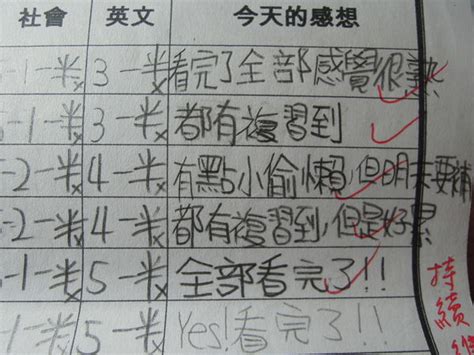 社會 英文 今天的感想
-1一半 3一半 看完了全部感覺很熟
-1一半 3一半 都有複習到
-2一半 4一半 有點小偷懶,但明天要補
-2一半 4一半 都有複習到,但是好累
-1一半 5一半 全部看完了!!
-1一半 5一半 Yes!看完了!!
持續